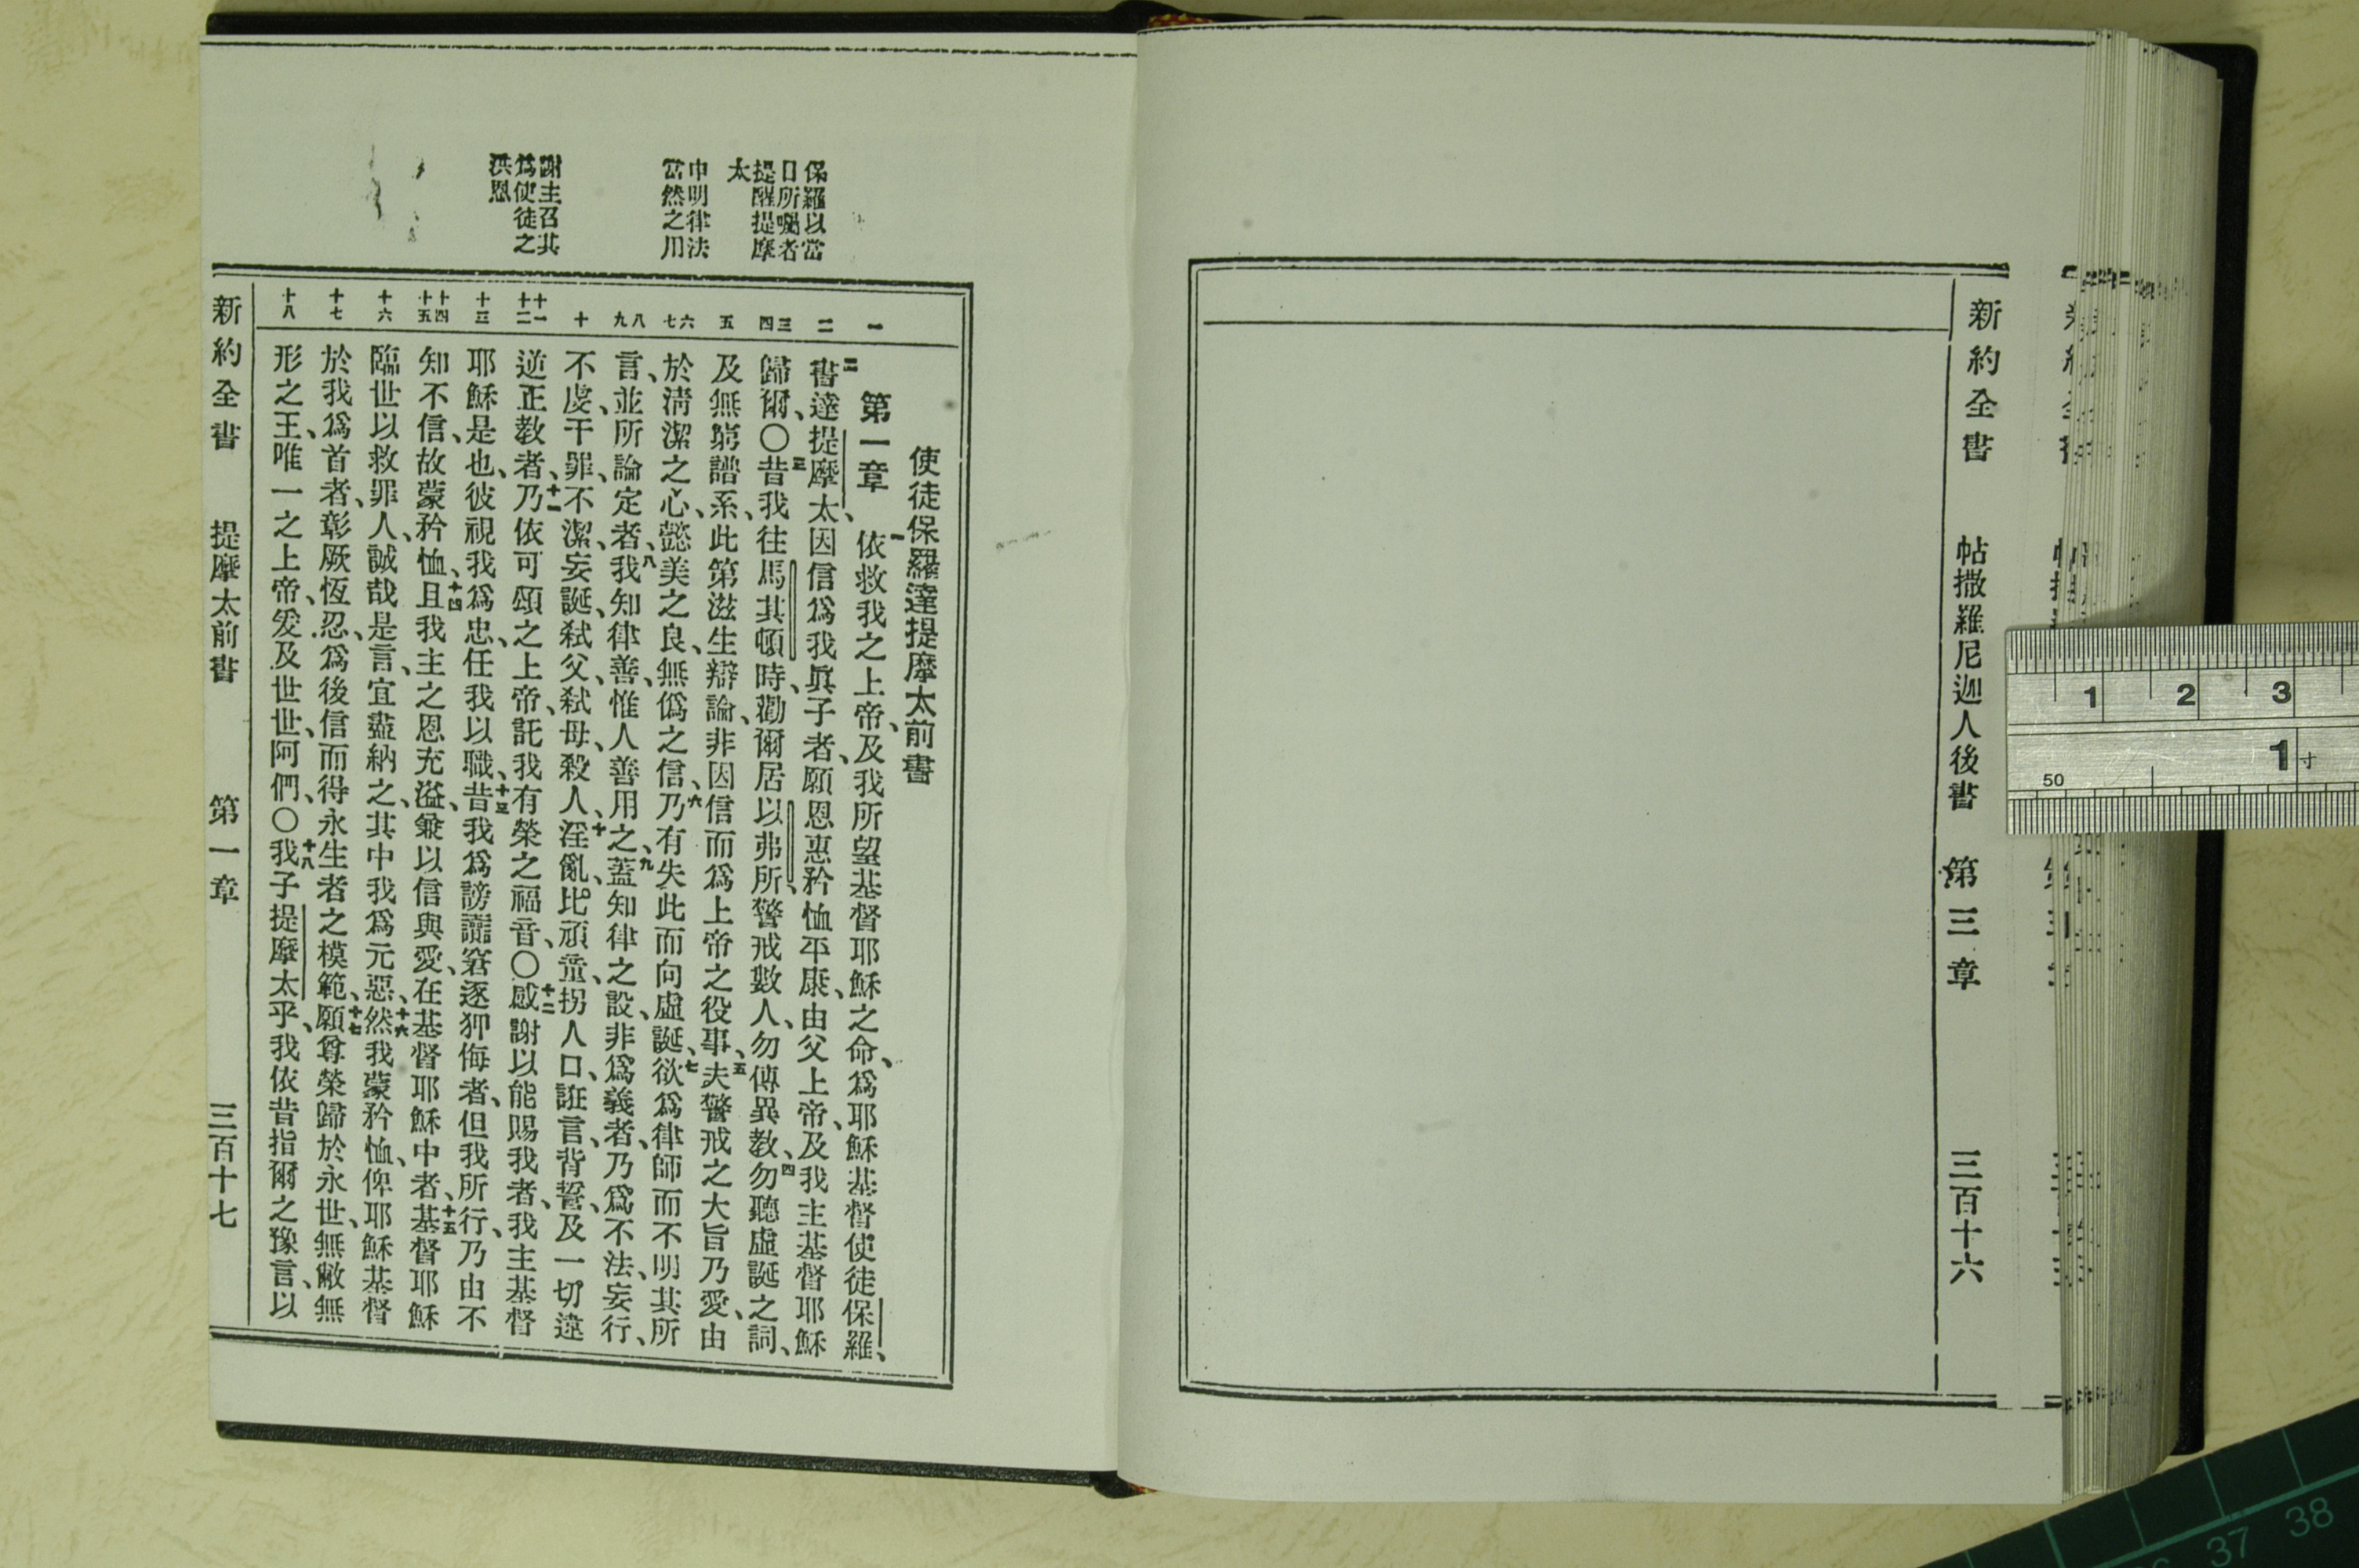 新約全書 帖撒羅尼迦人後書 第三章 三百十六
保羅以當
日所囑者
提醒提摩
太
申明律法
當然之用
謝主召其
爲使徒之
洪恩
一 二 三 四 五 六 七 八 九 十 十一 十二 十三 十四 十五 十六 十七 十八
使徒保羅達提摩太前書
第一章 一依救我之上帝、及我所望基督耶穌之命、爲耶穌基督使徒保羅、
二書達提摩太、因信爲我眞子者、願恩惠矜恤平康、由父上帝、及我主基督耶穌
歸爾、〇三昔我往馬其頓時、勸爾居以弗所、警戒數人、勿傳異教、四勿聽虛誕之詞、
及無窮譜系、此第滋生辯論、非因信而爲上帝之役事、五夫警戒之大旨乃愛、由
於淸潔之心、懿美之良、無僞之信、六乃有失此而向虛誕、七欲爲律師而不明其所
言、並所論定者、八我知律善、惟人善用之、九蓋知律之設、非爲義者、乃爲不法、妄行、
不虔、干罪、不潔、妄誕、弒父、弒母、殺人、十淫亂、比頑童、拐人口、誑言、背誓、及一切違
逆正教者、十一乃依可頌之上帝、託我有榮之福音、〇十二感謝以能賜我者、我主基督
耶穌是也、彼視我爲忠、任我以職、十三昔我爲謗讟窘逐狎侮者、但我所行、乃由不
知不信、故蒙矜恤、十四且我主之恩充溢、兼以信與愛、在基督耶穌中者、十五基督耶穌
臨世以救罪人、誠哉是言、宜盡納之、其中我爲元惡、十六然我蒙矜恤、俾耶穌基督
於我爲首者、彰厥恆忍、爲後信而得永生者之模範、十七願尊榮歸於永世、無敝無
形之王、唯一之上帝、爰及世世、阿們、〇十八我子提摩太乎、我依昔指爾之豫言、以
新約全書 提摩太前書 第一章 三百十七
1 2 3
1寸
50
37 38